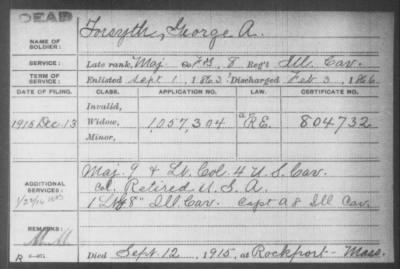 DEAD
NAME OF SOLDIER: Forsyth, George A.
SERVICE: Late rank, Maj. Co. F&S, 8 Reg't Ill. Cav.
TERM OF SERVICE: Enlisted Sept 1, 1863 Discharged Feb 3, 1866
DATE OF FILING. CLASS. APPLICATION NO. LAW. CERTIFICATE NO.
Invalid,
1915 Dec. 13 Widow, 1,057,304 R.E. 804732
Minor,
Maj. 9 & Lt. Col. 4 U.S. Cav.
ADDITIONAL SERVICES: Col. Retired U.S.A.
1 Lt 8" Ill Cav. Capt A 8 Ill Cav.
REMARKS:
Died Sept. 12, 1915, at Rockport - Mass.
R